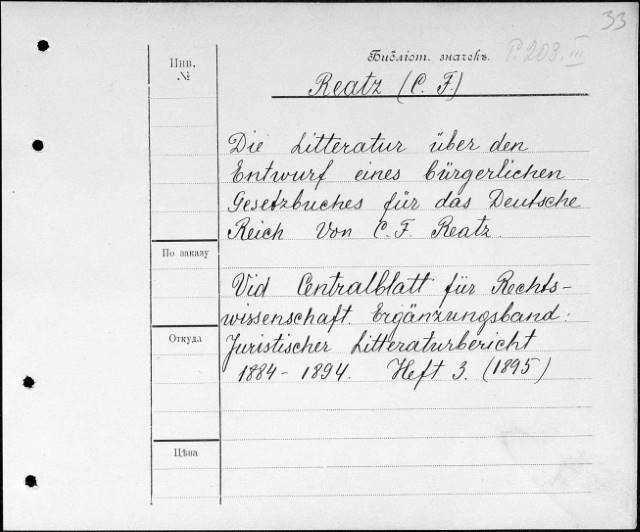 33
Инв.
№
Библіот. значекъ.
P. 203. III
Reatz (C. F.)
Die Litteratur über den
Entwurf eines bürgerlichen
Gesetzbuches für das Deutsche
Reich von C. F. Reatz.
По заказу
Vid Centralblatt für Rechts-
wissenschaft. Ergänzungsband:
Откуда
Juristischer Litteraturbericht
1884 - 1894. Heft 3. (1895)
Цѣна